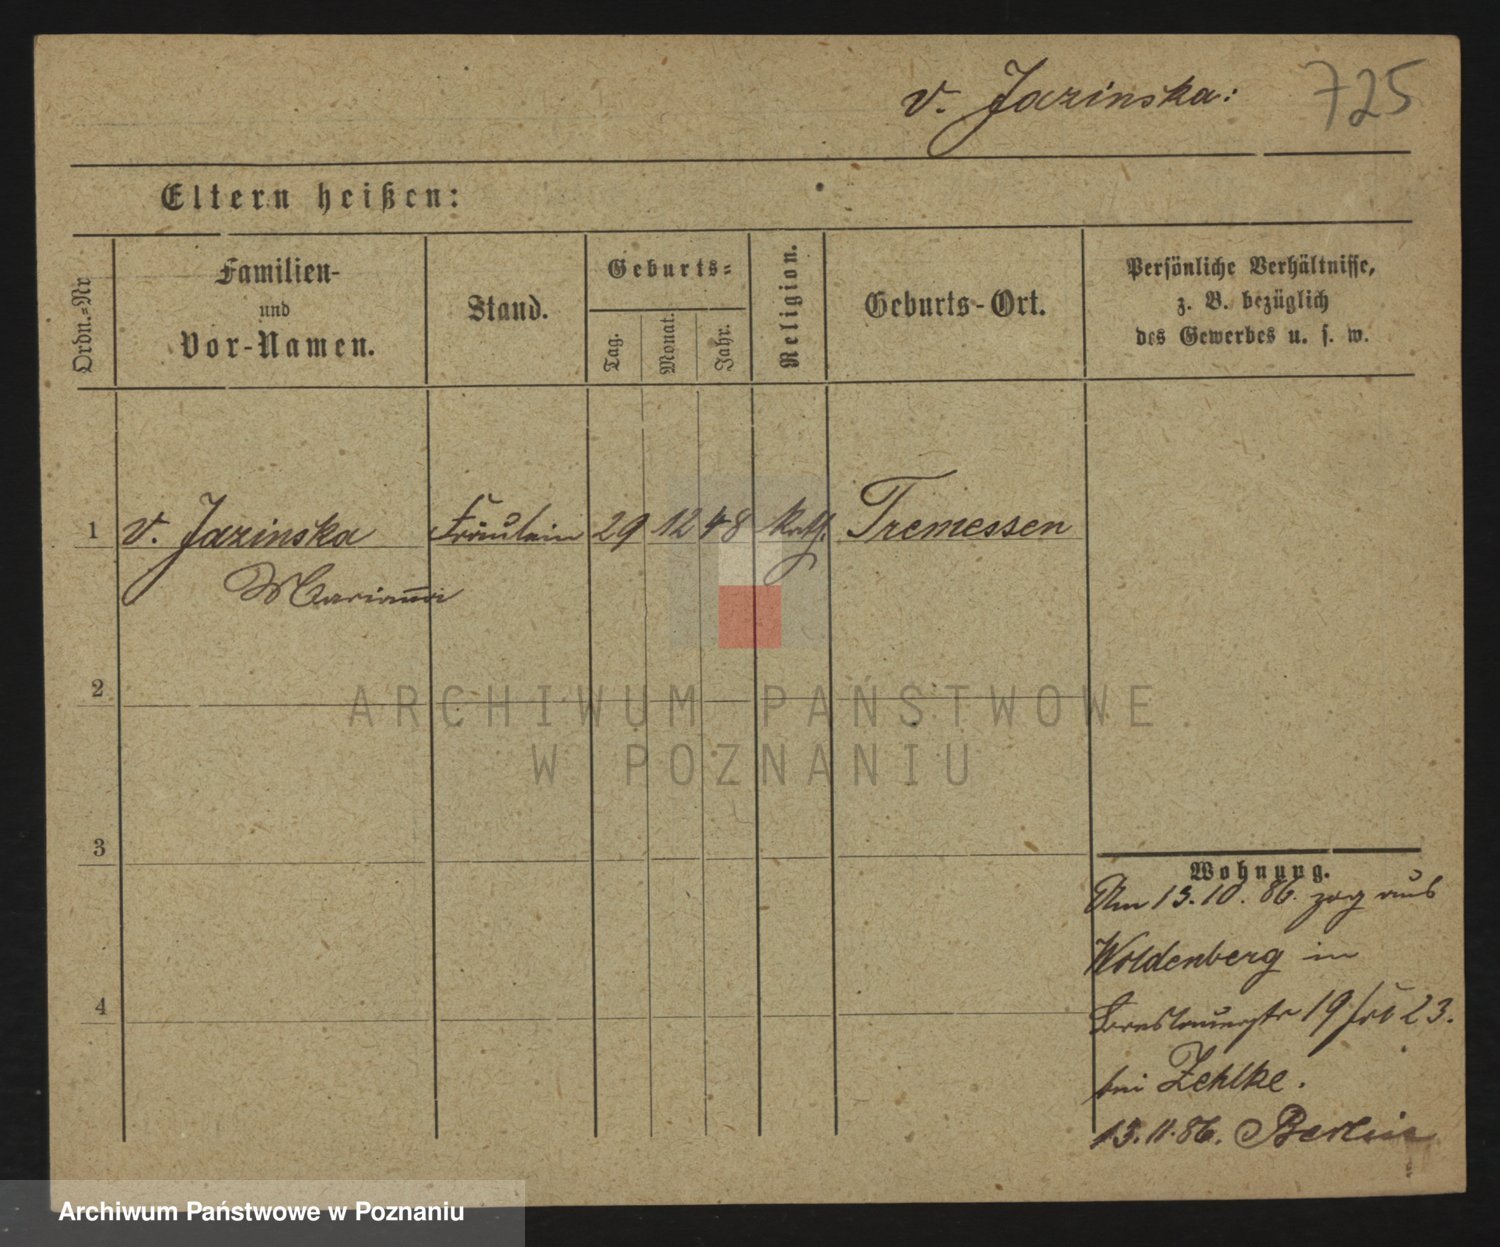 v. Jazinska: 725
Eltern heißen:
Ordn.-Nr
Familien-
und
Vor-Namen.
Stand.
Geburts-
Tag.
Monat.
Jahr.
Religion.
Geburts-Ort.
Persönliche Verhältnisse,
z. B. bezüglich
des Gewerbes u. s. w.
1 v. Jazinska Fräulein 29 12 48 kath. Tremessen
Marianna
2
ARCHIWUM PAŃSTWOWE
W POZNANIU
3
Wohnung.
Am 13.10.86. zog aus
Woldenberg in
4
Breslauerstr 19 23.
bei Zehlke.
15.11.86. Berlin
Archiwum Państwowe w Poznaniu